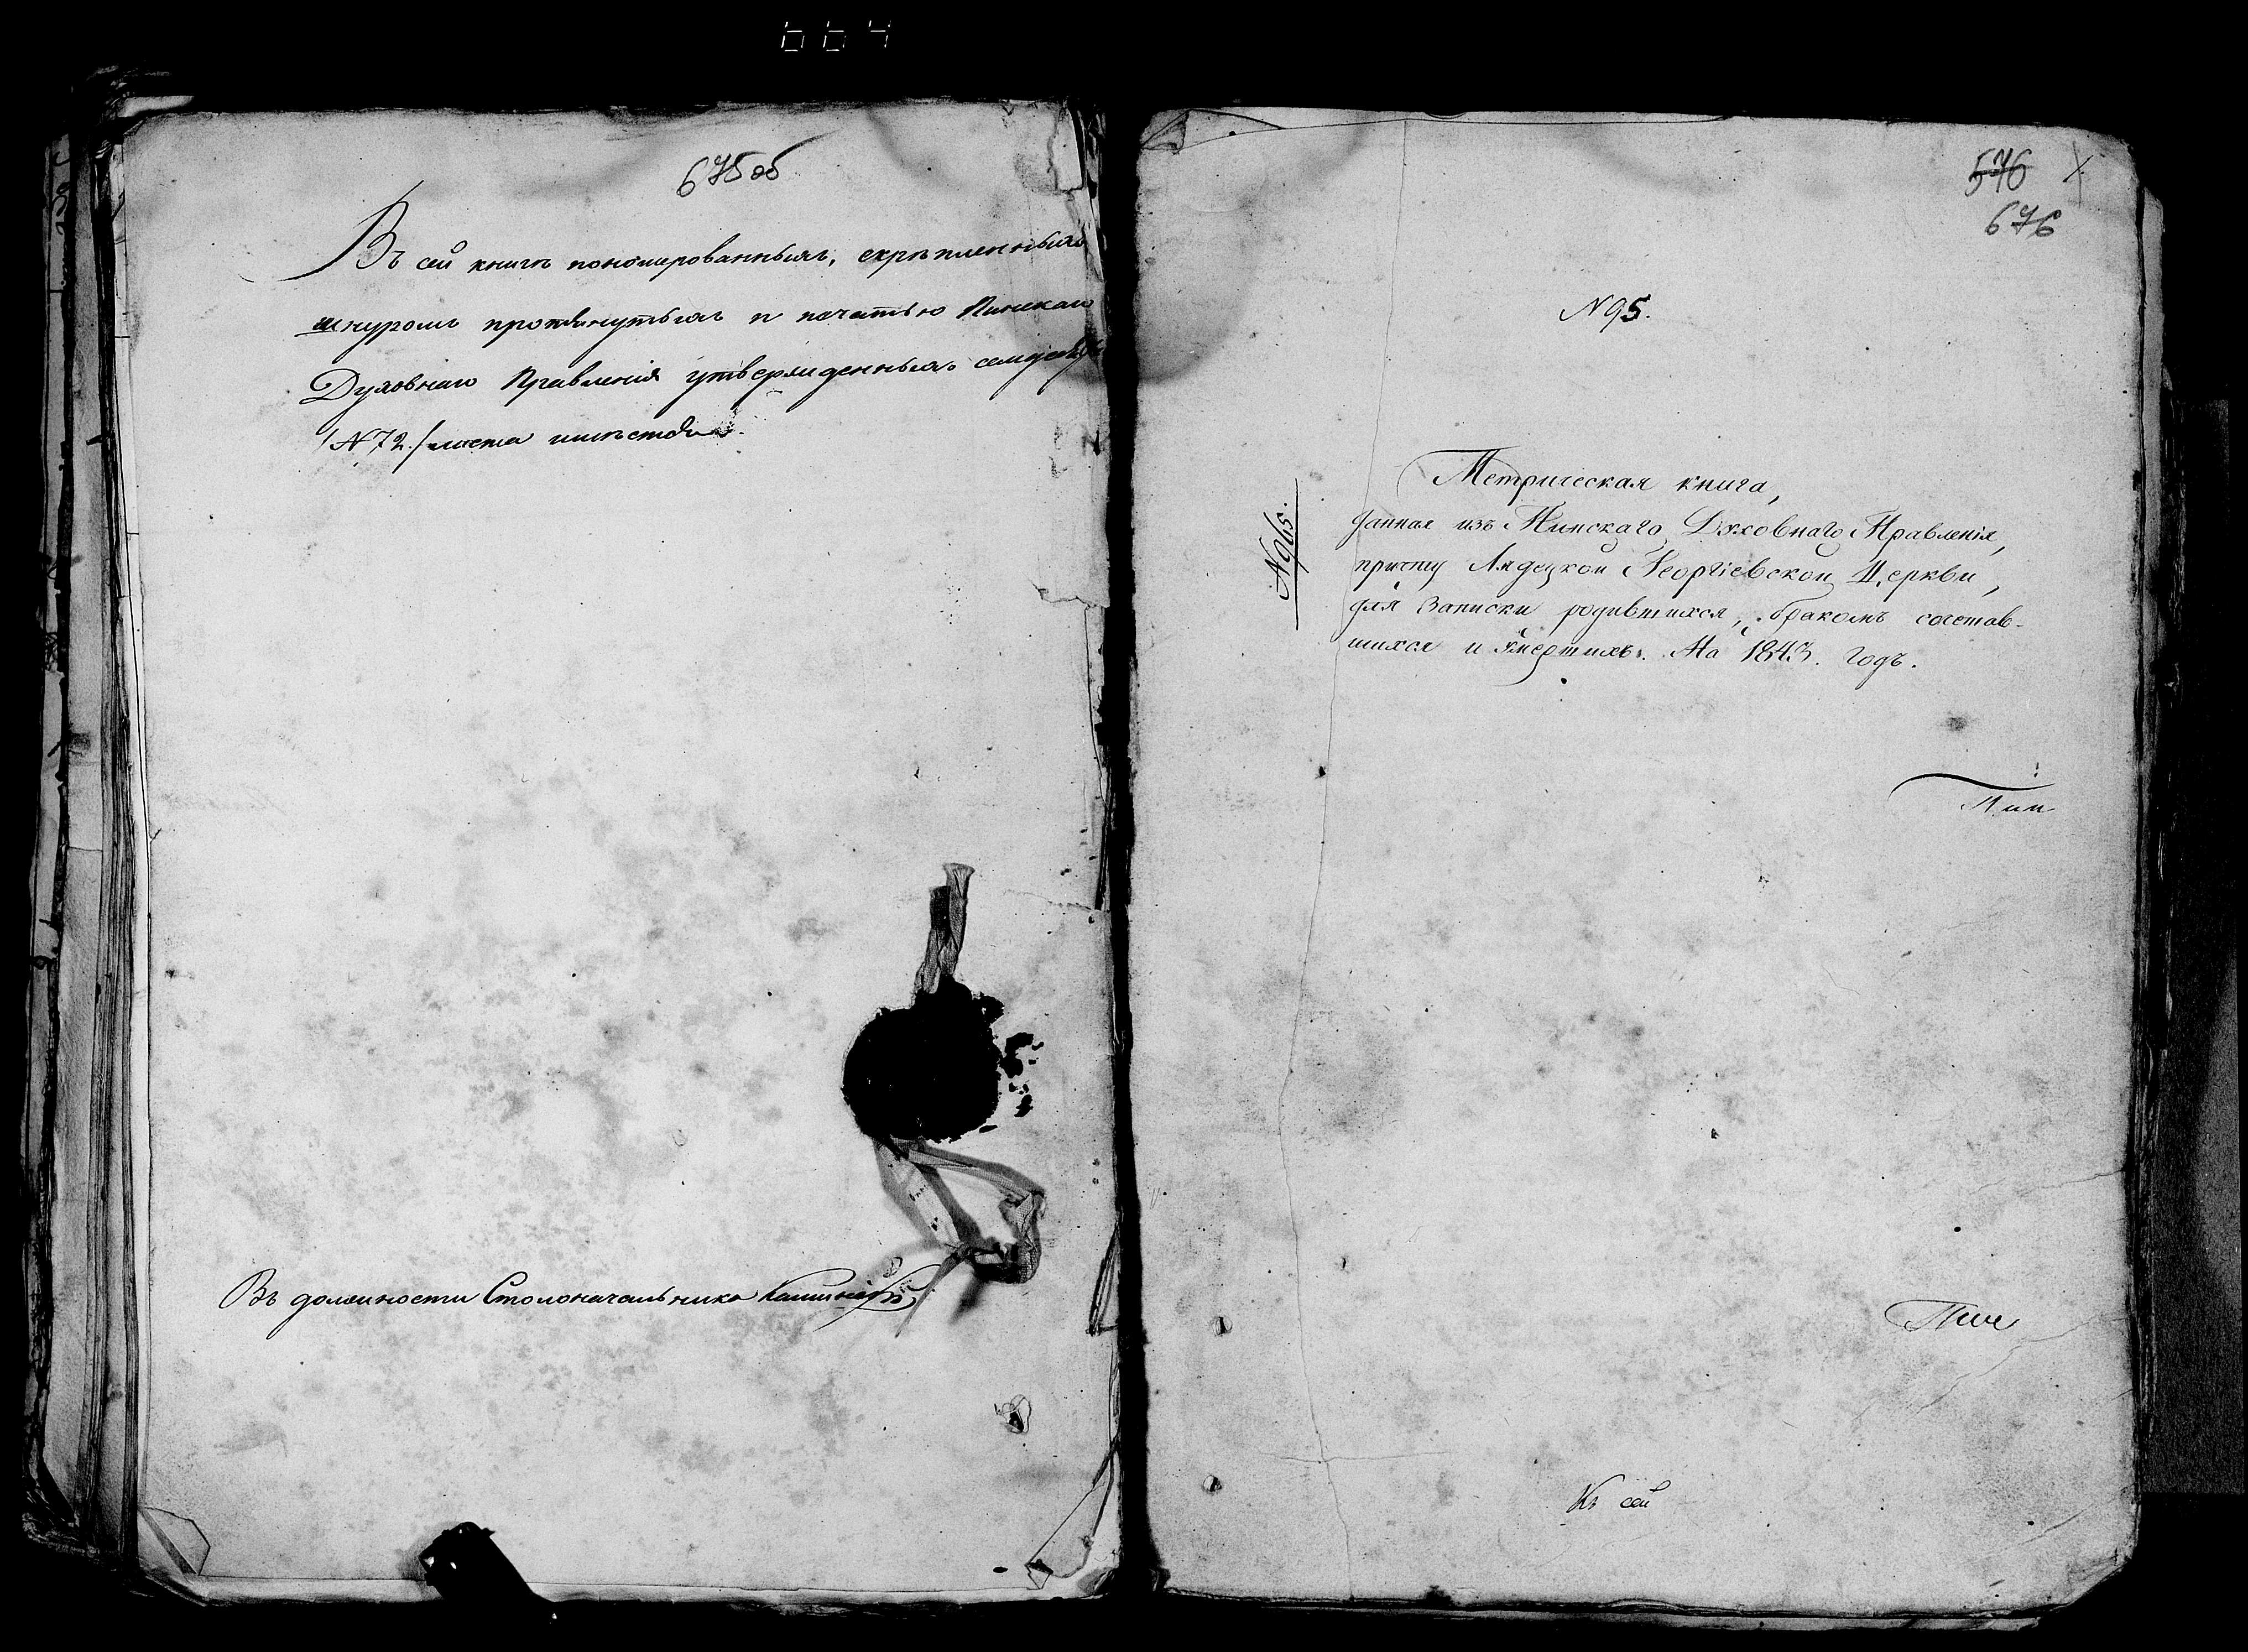 664
675 об
Въ сей книгѣ пономерованныхъ, скрѣпленныхъ
шнуромъ протянутыхъ и печатью Пинскаго
Духовнаго Правленія утвержденныхъ семдесятъ
/№ 72./ листа имѣется.
Въ должности Столоначальника
576
676
N 95.
N 965.
Метрическая книга,
данная изъ Пинскаго Духовнаго Правленія,
причту Лядецкой Георгіевской Церкви,
для записки родившихся, бракомъ сочетав-
шихся и умершихъ. На 1843. годъ.
Къ сей